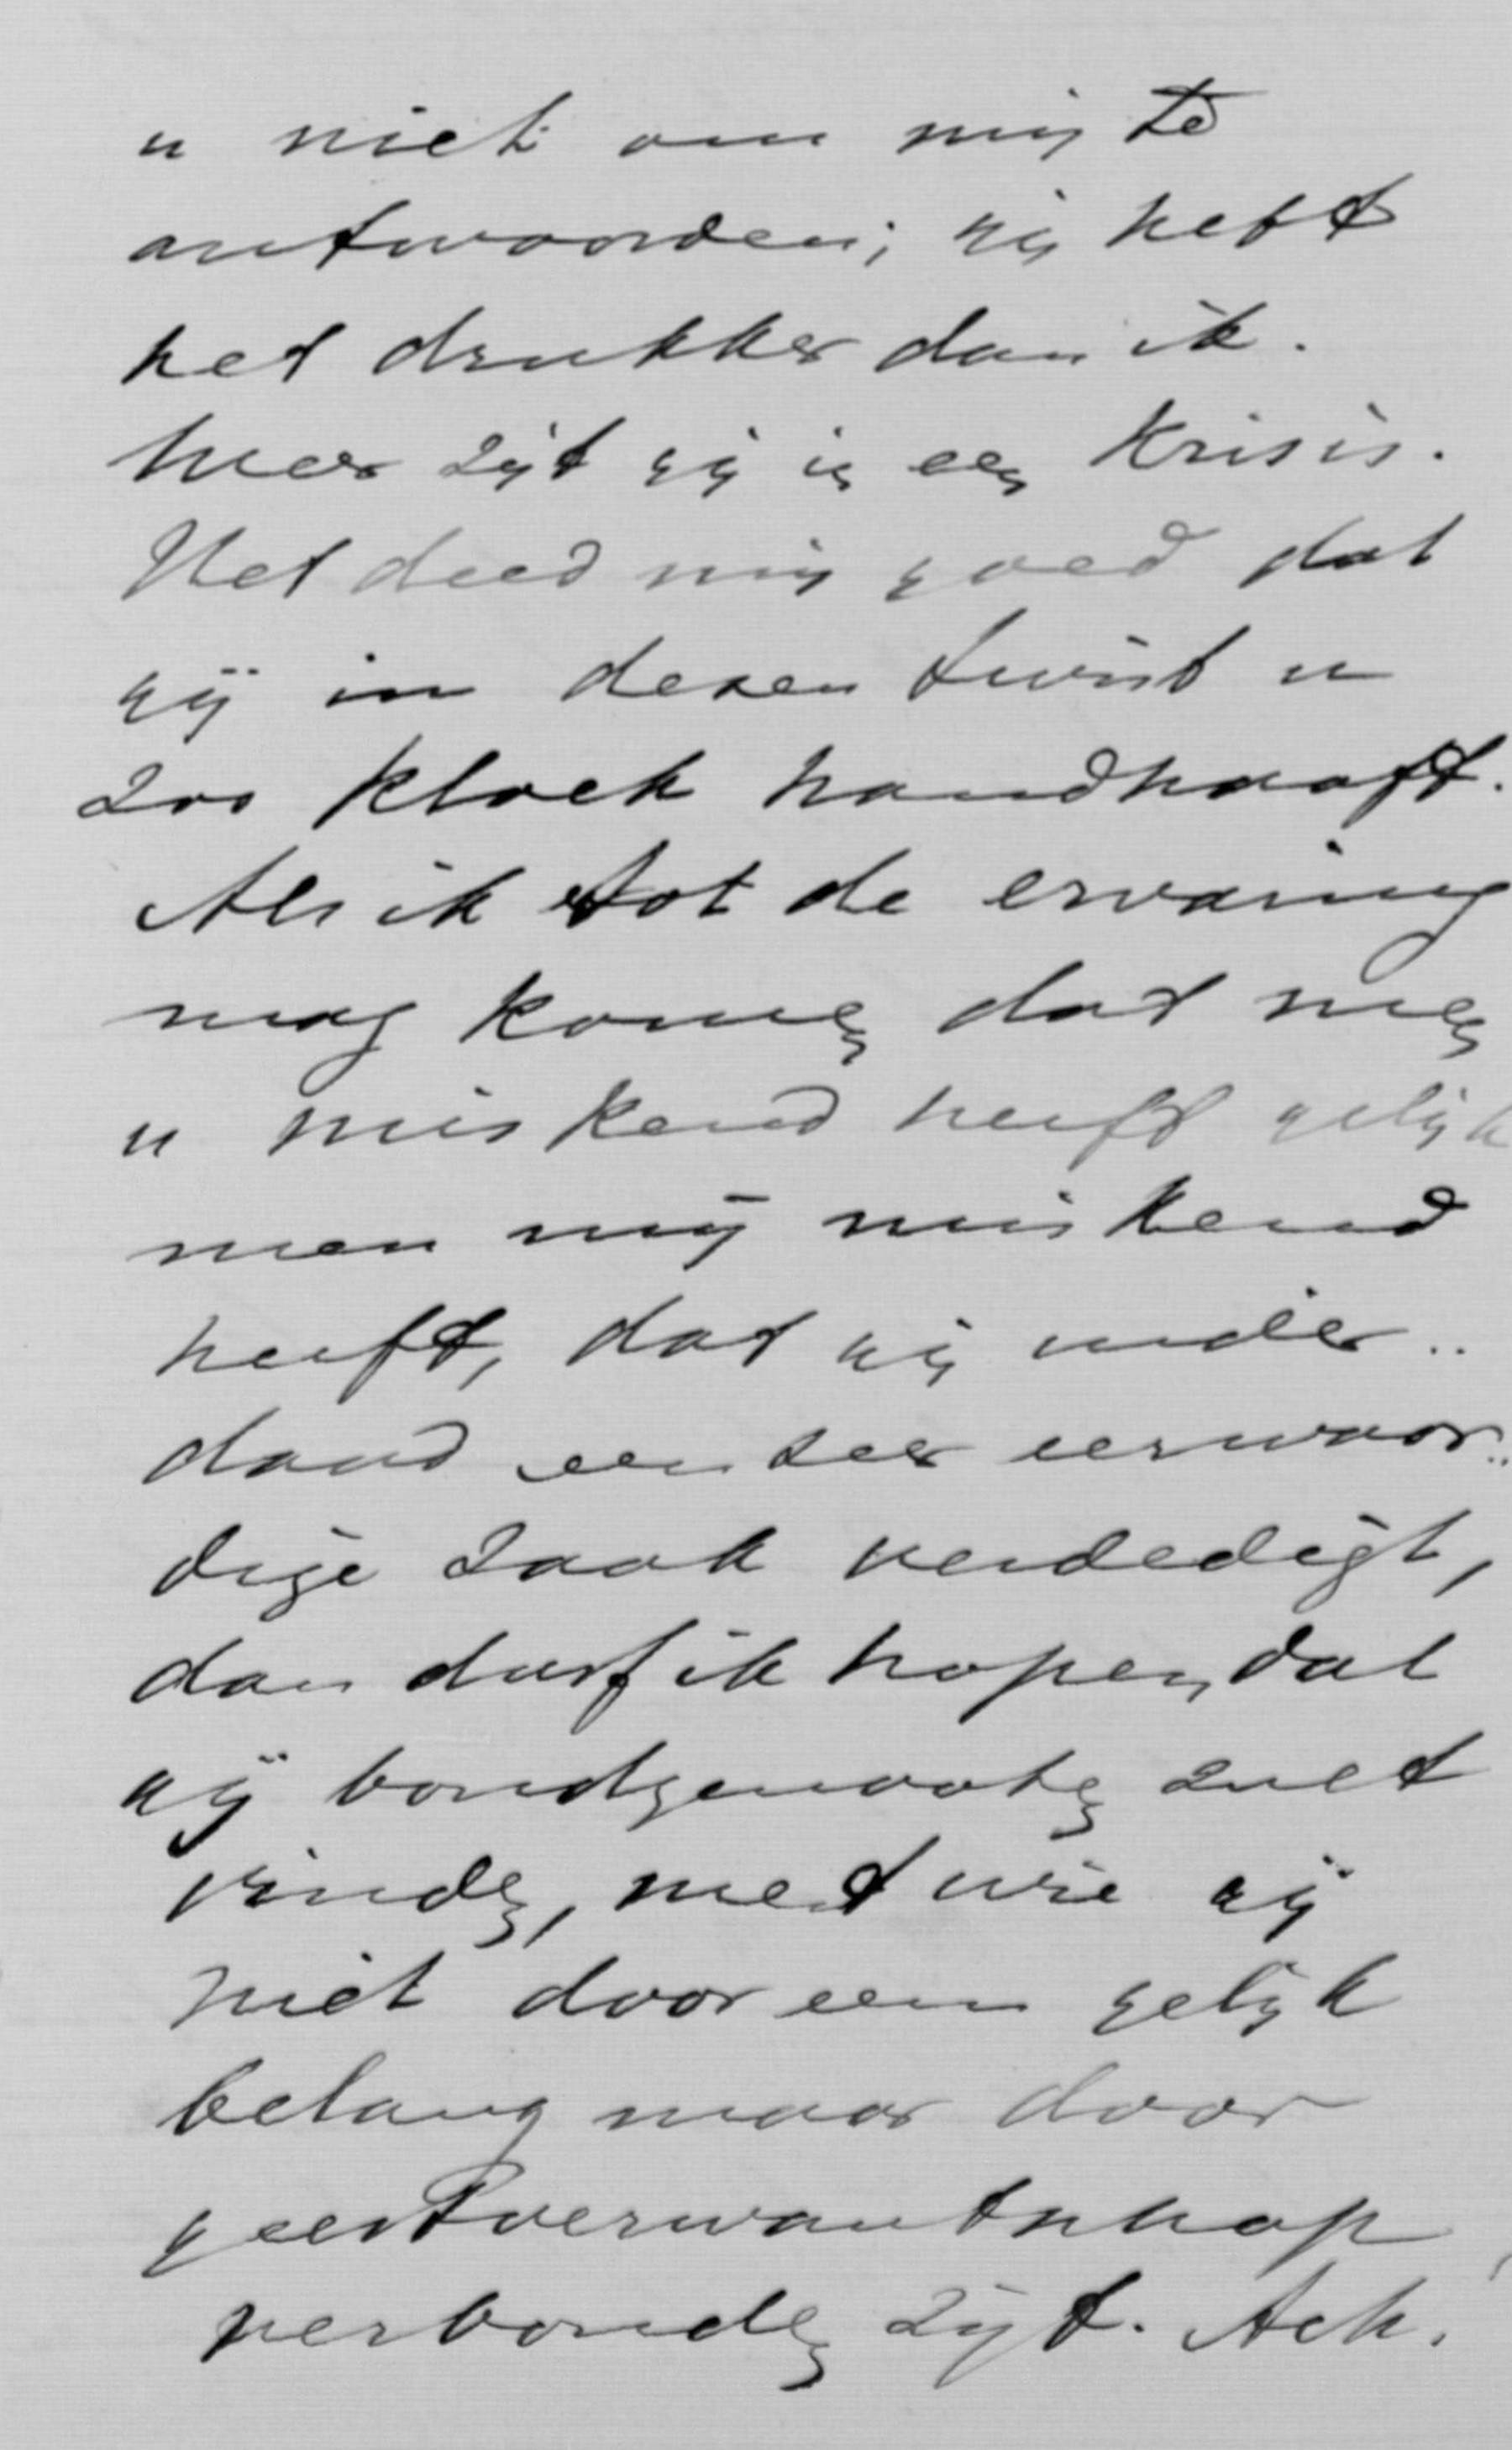 u niet om mij te
antwoorden; gij hebt
het drukker dan ik.
Hier zijt gij in een krisis.
Het deed mij goed dat
gij in dezen twist u
zoo kloek handhaaft.
Als ik tot de ervaring
mag komen dat men
u miskend heeft gelijk
men mij miskend
heeft, dat gij inder..
daad een zeer eerwaar..
dige zaak verdedigt,
dan durf ik hopen, dat
gij bondgenooten zult
vinden, met wie gij
niet door een gelijk
belang maar door
geestverwantschap
verbonden zijt. Ach.